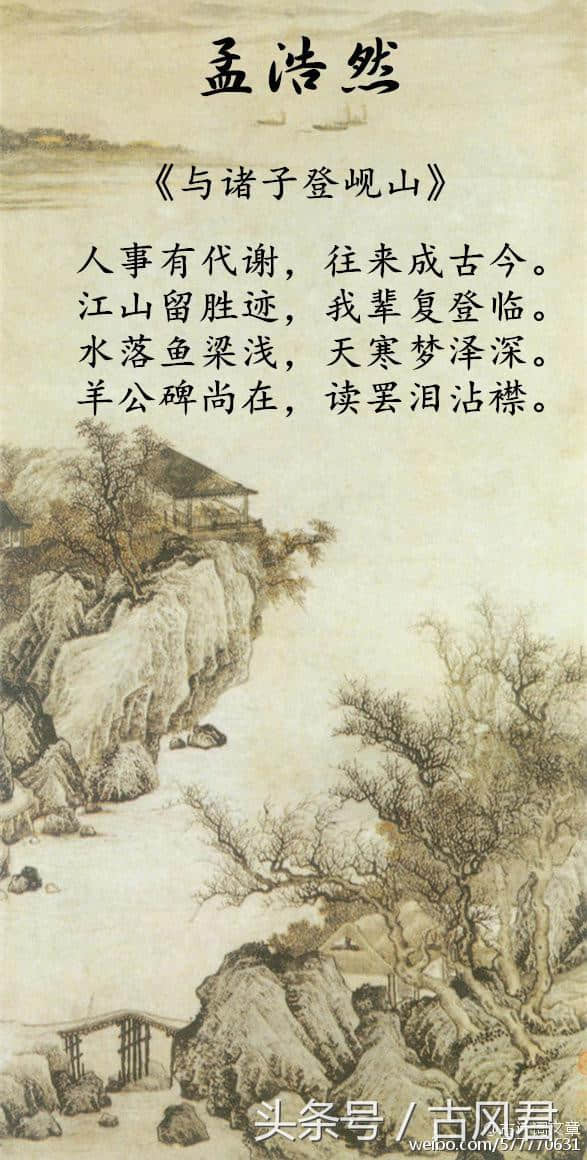 孟浩然
《与诸子登岘山》
人事有代谢，往来成古今。
江山留胜迹，我辈复登临。
水落鱼梁浅，天寒梦泽深。
羊公碑尚在，读罢泪沾襟。
头条号 / 古风君
weibo.com/577770631